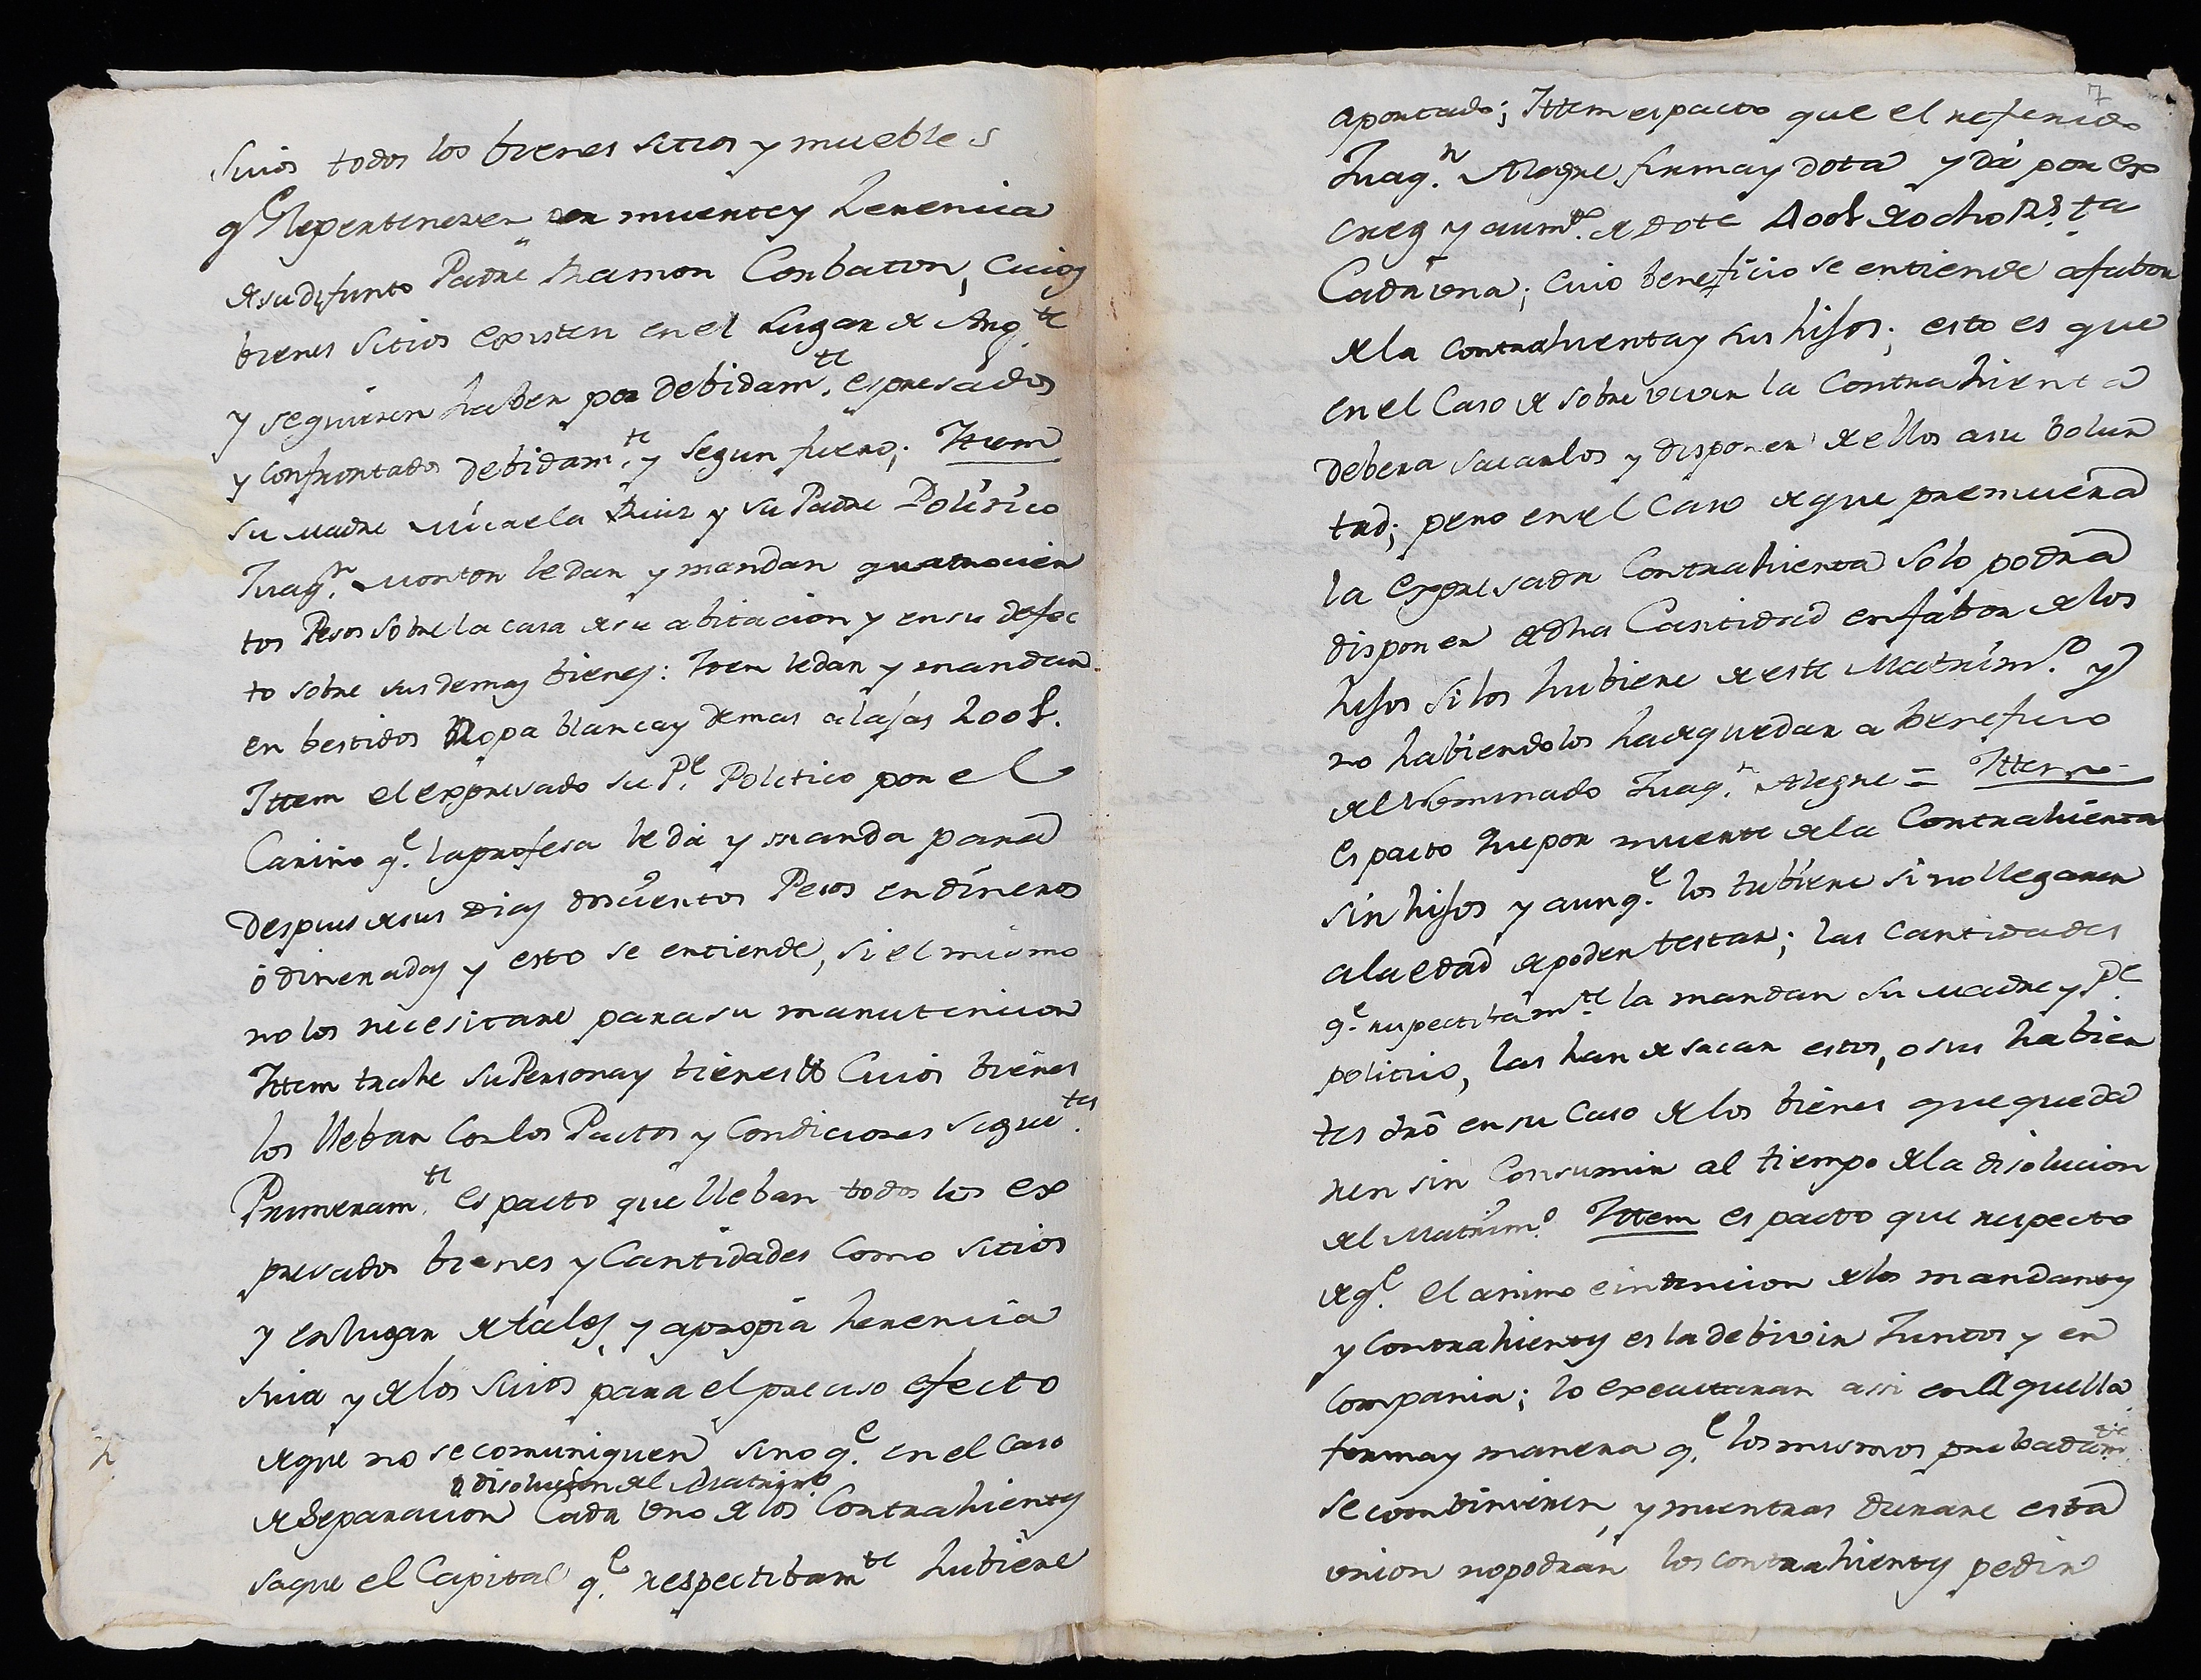 Suios todos los bienes sitios y muebles
q.e le pertenezen por muerte y herencia
de su difunto Padre Ramon Corbaton, Cuios
bienes sitios existen en el Lugar de Arg.te
y se quieren haber por debidam.te espresados
y confrontados debidam.te y segun fuero; Ittem
su Madre Micaela Ruiz y su Padre Politico
Juaq.n Monton le dan y mandan quatrocien
tos Pesos sobre la casa de su abitacion y en su defec
to sobre sus demas bienes: Itten le dan y mandan
en bestidos Ropa blanca y demas alajas 200 £.
Ittem el expresado su P.e Politico por el
Cariño q.e la profesa le dá y manda para
despues de sus dias doscientos Pesos en dineros
ó dineradas y esto se entiende, si el mismo
no los necesitare para su manutencion
Ittem trahe su Persona y bienes Cuios bienes
los lleban con los Pactos y Condiciones siguie.tes
Primeram.te es pacto que lleban todos los ex
presados bienes y Cantidades como sitios
y en lugar de tales, y a propia herencia
suia y de los suios para el preciso efecto
de que no se comuniquen sino q.e en el caso
o disolucion del Matrim.o
de Separacion Cada uno de los Contrahientes
saque el Capital q.e respectibam.te hubiere
7
aportado; Ittem es pacto que el referido
Juaq.n Alegre firma y dota y dá por ex
creg y aum.to de dote 100 £ de ocho R.s ta
Cada una; cuio beneficio se entiende a fabor
de la contrahienta y sus hijos; esto es que
en el Caso de sobrevivir la Contrahienta
debera sacarlos y disponer de ellos a su bolun
tad; pero en el Caso de que premuera
la expresada Contrahienta solo podrá
disponer de dha Cantidad en fabor de los
hijos si los hubiere de este Matrim.o y
no habiendolos ha de quedar a beneficio
del Nominado Juaq.n Alegre = Ittem
es pacto que por muerte de la Contrahienta
sin hijos y aunq.e los tubiere si no llegaren
a la edad de poder testar; las cantidades
q.e respectibam.te la mandan su Madre y P.e
politico, las han de sacar estos, o sus habien
tes dro en su caso de los bienes que queda
ren sin Consumir al tiempo de la disolucion
del Matrim.o Ittem es pacto que respecto
de q.e el animo e intencion de los mandantes
y Contrahientes es la de bivir Juntos y en
compania; lo executaran assi en Aquella
forma y manera q.e los mismos pribadam.te
se combinieren, y mientras durare esta
union no podrán los contrahientes pedir